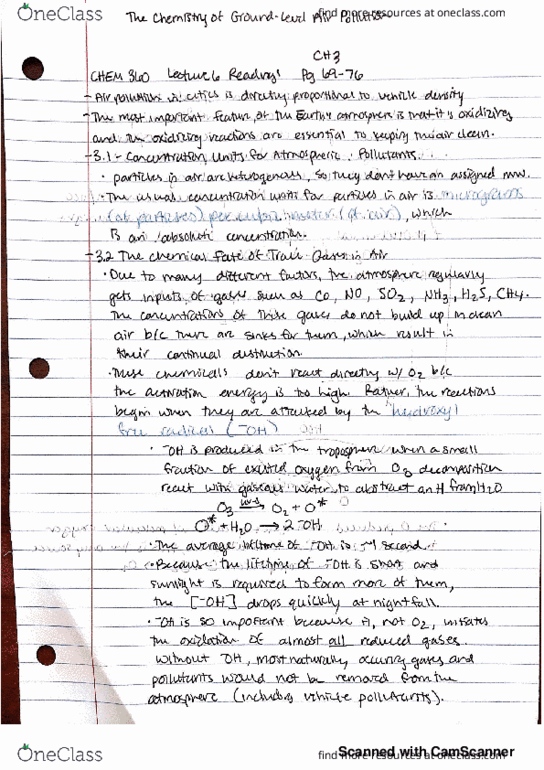 OneClass
find more resources at oneclass.com
The Chemistry of Ground-Level Air Pollution
CH 3
CHEM 360 Lecture 6 Readings Pg 69-76
- Air pollution in cities is directly proportional to vehicle density
- The most important feature of the Earth's atmosphere is that it is oxidizing
and the oxidizing reactions are essential to keeping the air clean.
- 3.1 - Concentration Units for Atmospheric Pollutants
• particles in air are heterogeneous, so they don't have an assigned mw.
• The usual concentration units for particles in air is micrograms
(of particles) per cubic meter (of air), which
is an absolute concentration.
- 3.2 The Chemical Fate of Trace Gases in Air
• Due to many different factors, the atmosphere regularly
gets inputs of gases such as CO, NO, SO2, NH3, H2S, CH4.
The concentrations of these gases do not build up in clean
air b/c there are sinks for them, which result in
their continual destruction.
• These chemicals don't react directly w/ O2 b/c
the activation energy is too high. Rather, the reactions
begin when they are attacked by the hydroxyl
free radical (·OH)
• ·OH is produced in the troposphere when a small
fraction of excited oxygen from O3 decomposition
react with gaseous water to abstract an H from H2O
O3 UV-B → O2 + O*
O* + H2O → 2 ·OH
• The average lifetime of ·OH is ~1 second.
• Because the lifetime of ·OH is short and
sunlight is required to form more of them,
the [·OH] drops quickly at nightfall.
• ·OH is so important because it, not O2, initiates
the oxidation of almost all reduced gases.
Without ·OH, most naturally occuring gases and
pollutants would not be removed from the
atmosphere (including vehicle pollutants).
Scanned with CamScanner
OneClass
find more resources at oneclass.com